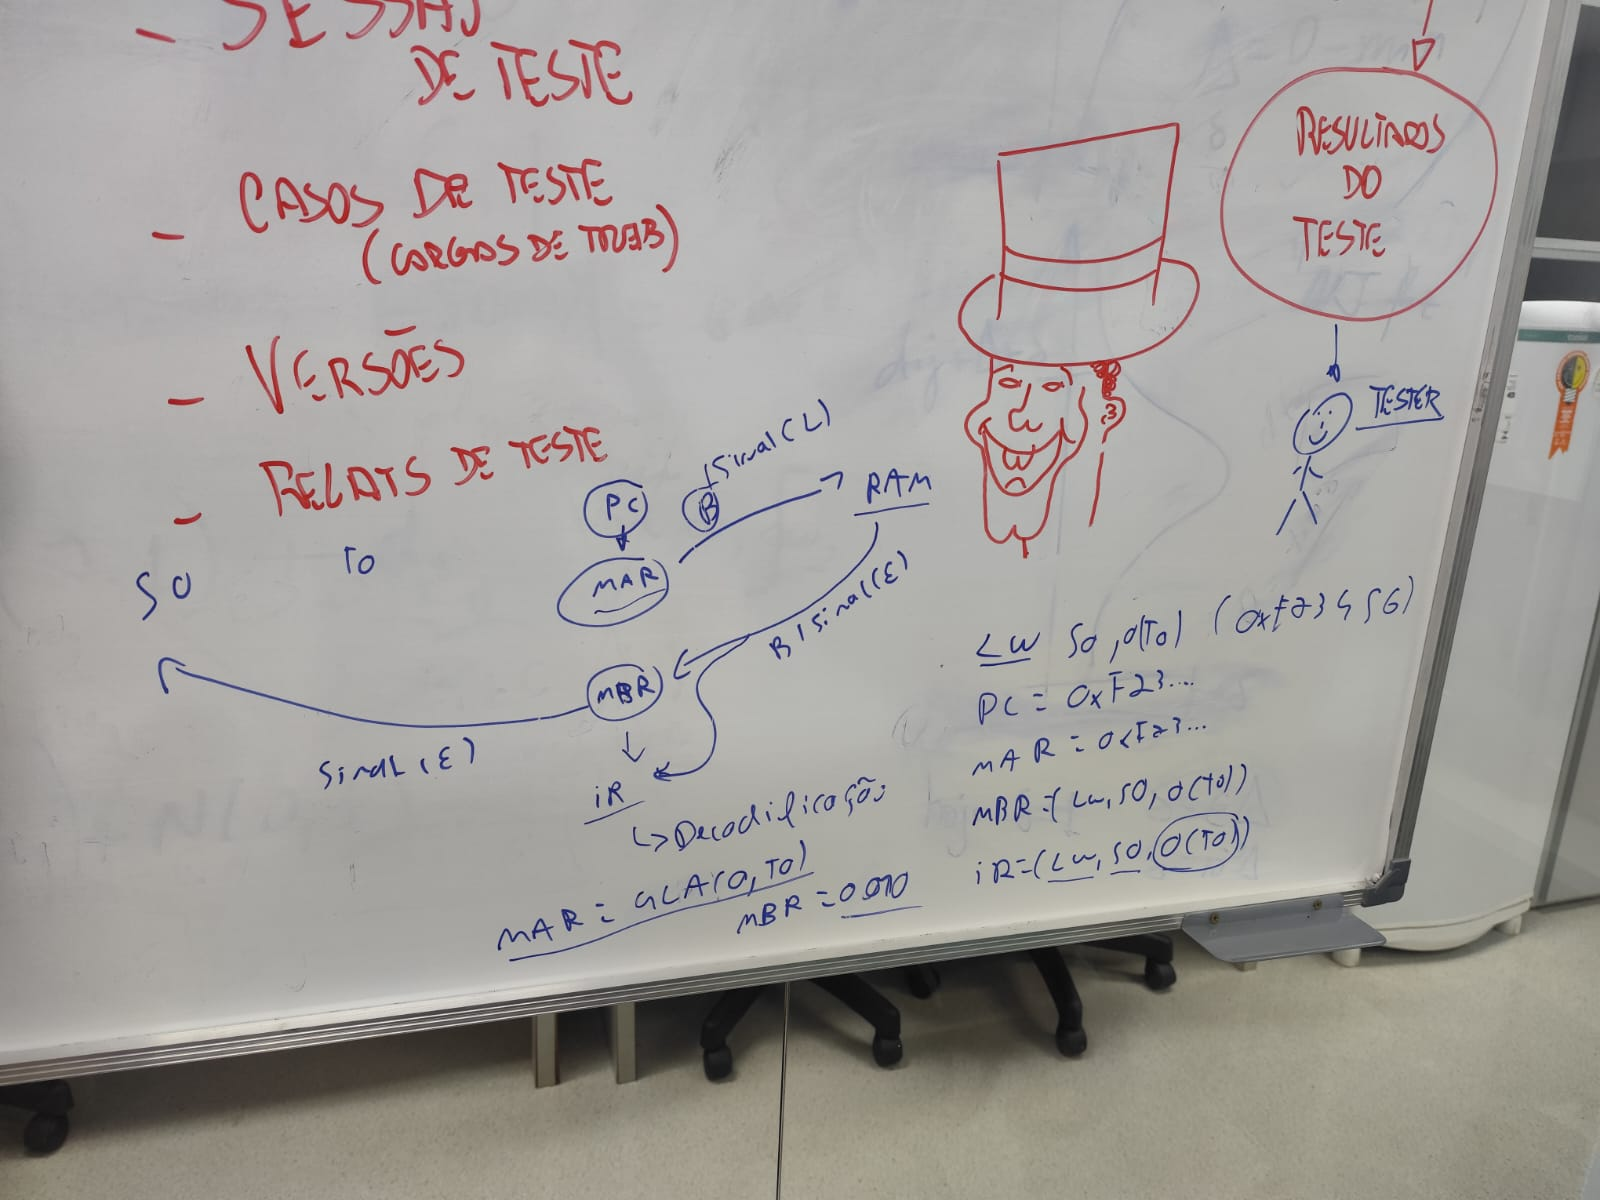 DE TESTE
- CASOS DE TESTE
- VERSÕES
- RELATS DE TESTE
RESULTADOS
DO
TESTE
TESTER
S0
T0
PC
B
Sinal (L)
RAM
MAR
B / Sinal (E)
MBR
Sinal (E)
iR
↳ Decodificação
MBR = 
LW S0, 0(T0) (0xF23456)
PC = 0xF23....
MAR = 0xF23...
MBR = (LW, S0, 0(T0))
iR = (LW, S0, 0(T0))